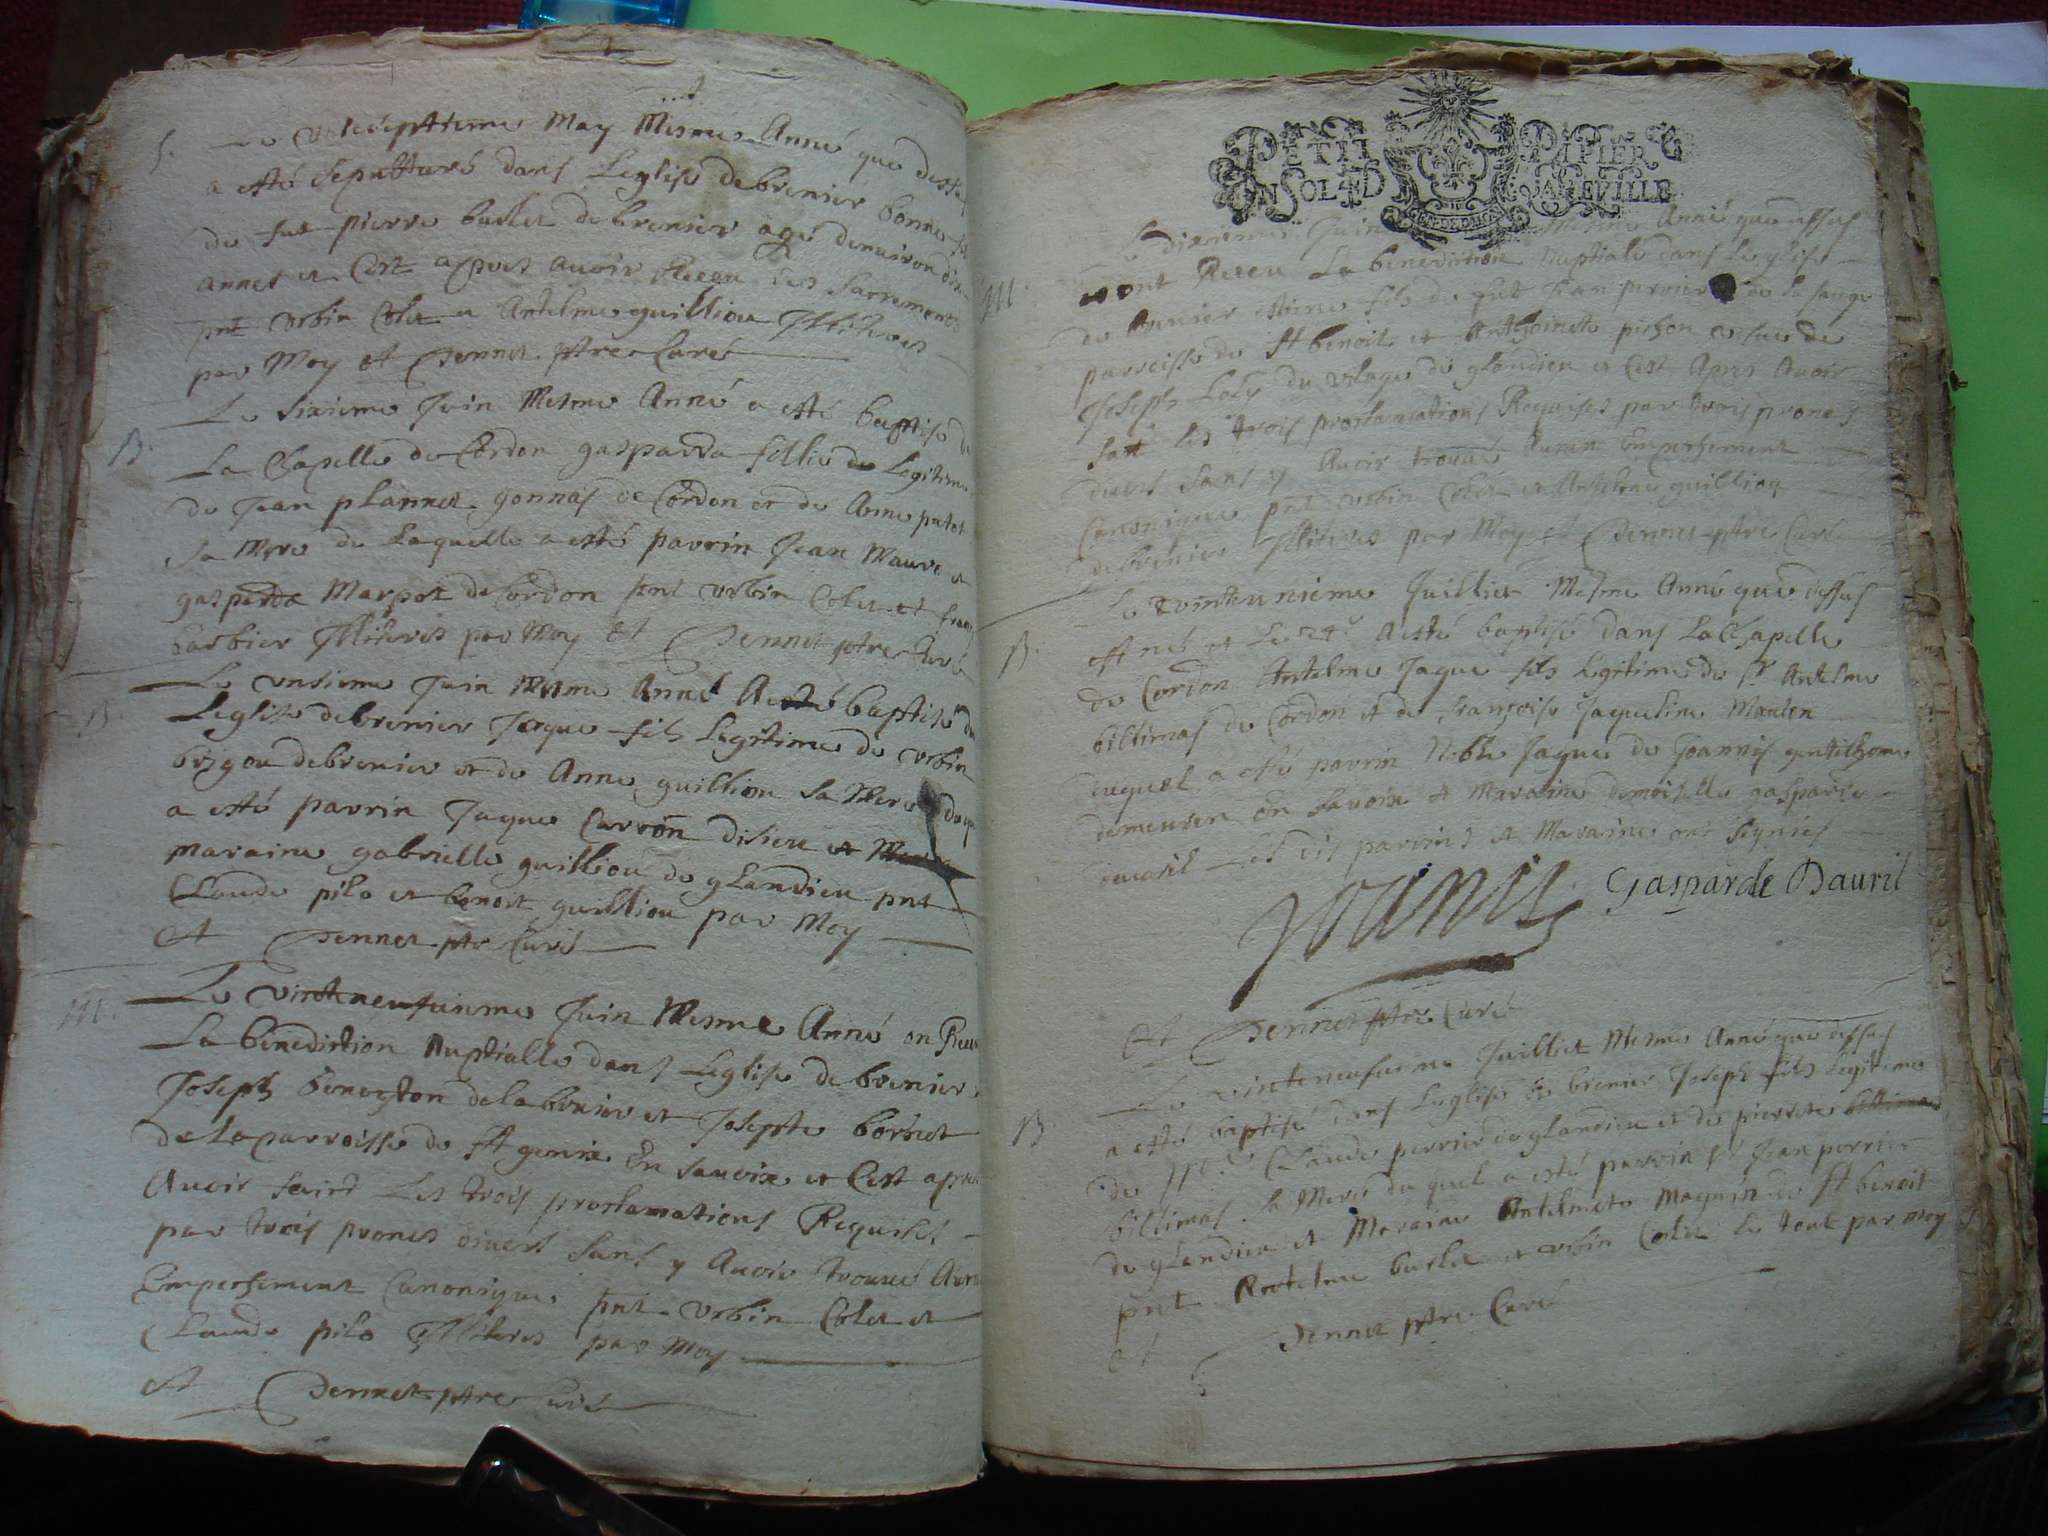 S.
Le vintseptieme May Mesme Anné que dessus
a esté sepulturé dans Leglise de brenier bonne
de fut pierre burlet de brenier agé denviron dix
annes et Cest apres avoir Receu les Sacrements
pnt Urbin Colet et Antelme guilliou Illiteres
par Moy et Dennet ptre Curé
B.
Le Sixieme Juin Mesme Anné a esté baptisé da
La Chapelle de Cordon gasparda fillie Legitime
de Jean plannet gonnas de Cordon et de Anne putet
Sa Mere de Laquelle a esté parrin Jean Maure et
gasparda Margot de Cordon pnt Urbin Colet et
barbier Illiteres par Moy Et Dennet ptre Curé
B.
Le unsieme Juin Mesme Anné A esté baptisé da
Leglise de brenier Jaque fils Legitime de Urbin
brigou de brenier et de Anne guilliou Sa Mere duq
a esté parrin Jaque Carron disieu et
Maraine gabrielle guilliou de glandieu pnt
Claude pilo et benoit guilliou par Moy
et Dennet ptr Curé
M.
Le vinteneufuieme Juin Mesme Anné on Receu
La benediction Nuptialle dans Leglise de brenier
Joseph de la et Josepte borbet
de La parroisse de St genix En Savoix et Cest apres
Avoir faict Les trois proclamations Requises
par trois prones divers Sans y Avoir trouvé Aucu
Empechement Canonique pnt Urbin Colet et
Claude pilo Illiteres par Moy
et Dennet ptre Curé
PETIT PAPIER
UN SOL 4 D LA FEVILLE
GEN DE DIJON
M.
Le dixieme Juin Mesme Anné que dessus
ont Receu La benediction Nuptiale dans Leglise
de brenier fils de fut Jean perrier de la
parroisse de St benoit et Anthoinete pichon vefue de
Joseph Loly du vilage de glandieu et Cest Apres Avoir
fait les trois proclamations Requises par trois prones
divers Sans y Avoir trouvé Aucun Empechement
Canonique pnt Urbin Colet et Antelme guilliou
de brenier Illiteres par Moy et Dennet ptre Curé
B.
Le vintunieme Juilliet Mesme Anné que dessus
est né et Le 24e A esté baptisé dans La Chapelle
de Cordon Antelme Jaque fils Legitime de Sr Antelme
billimas de Cordon et de françoise Jaqueline
duquel a esté parrin Noble Jaque de Joannis gentilhome
demeuren En Savoix et Maraine demoiselle gasparde
dauril Les dis parrins et Maraine ont signés
Joannis Gasparde Dauril
et Dennet ptre Curé
B.
Le vinteneufueme Juilliet Mesme Anné que dessus
a esté baptisé dans Leglise de brenier Joseph fils Legitime
de Claude perrier de glandieu et de pierrete billimas
billimas Sa Mere du quel a esté parrin Sr Jean perrier
de glandieu et Maraine Antelmete Magnin de St benoit
pnt Antelme burlet et Urbin Colet Le tout par Moy
et Dennet ptre Curé